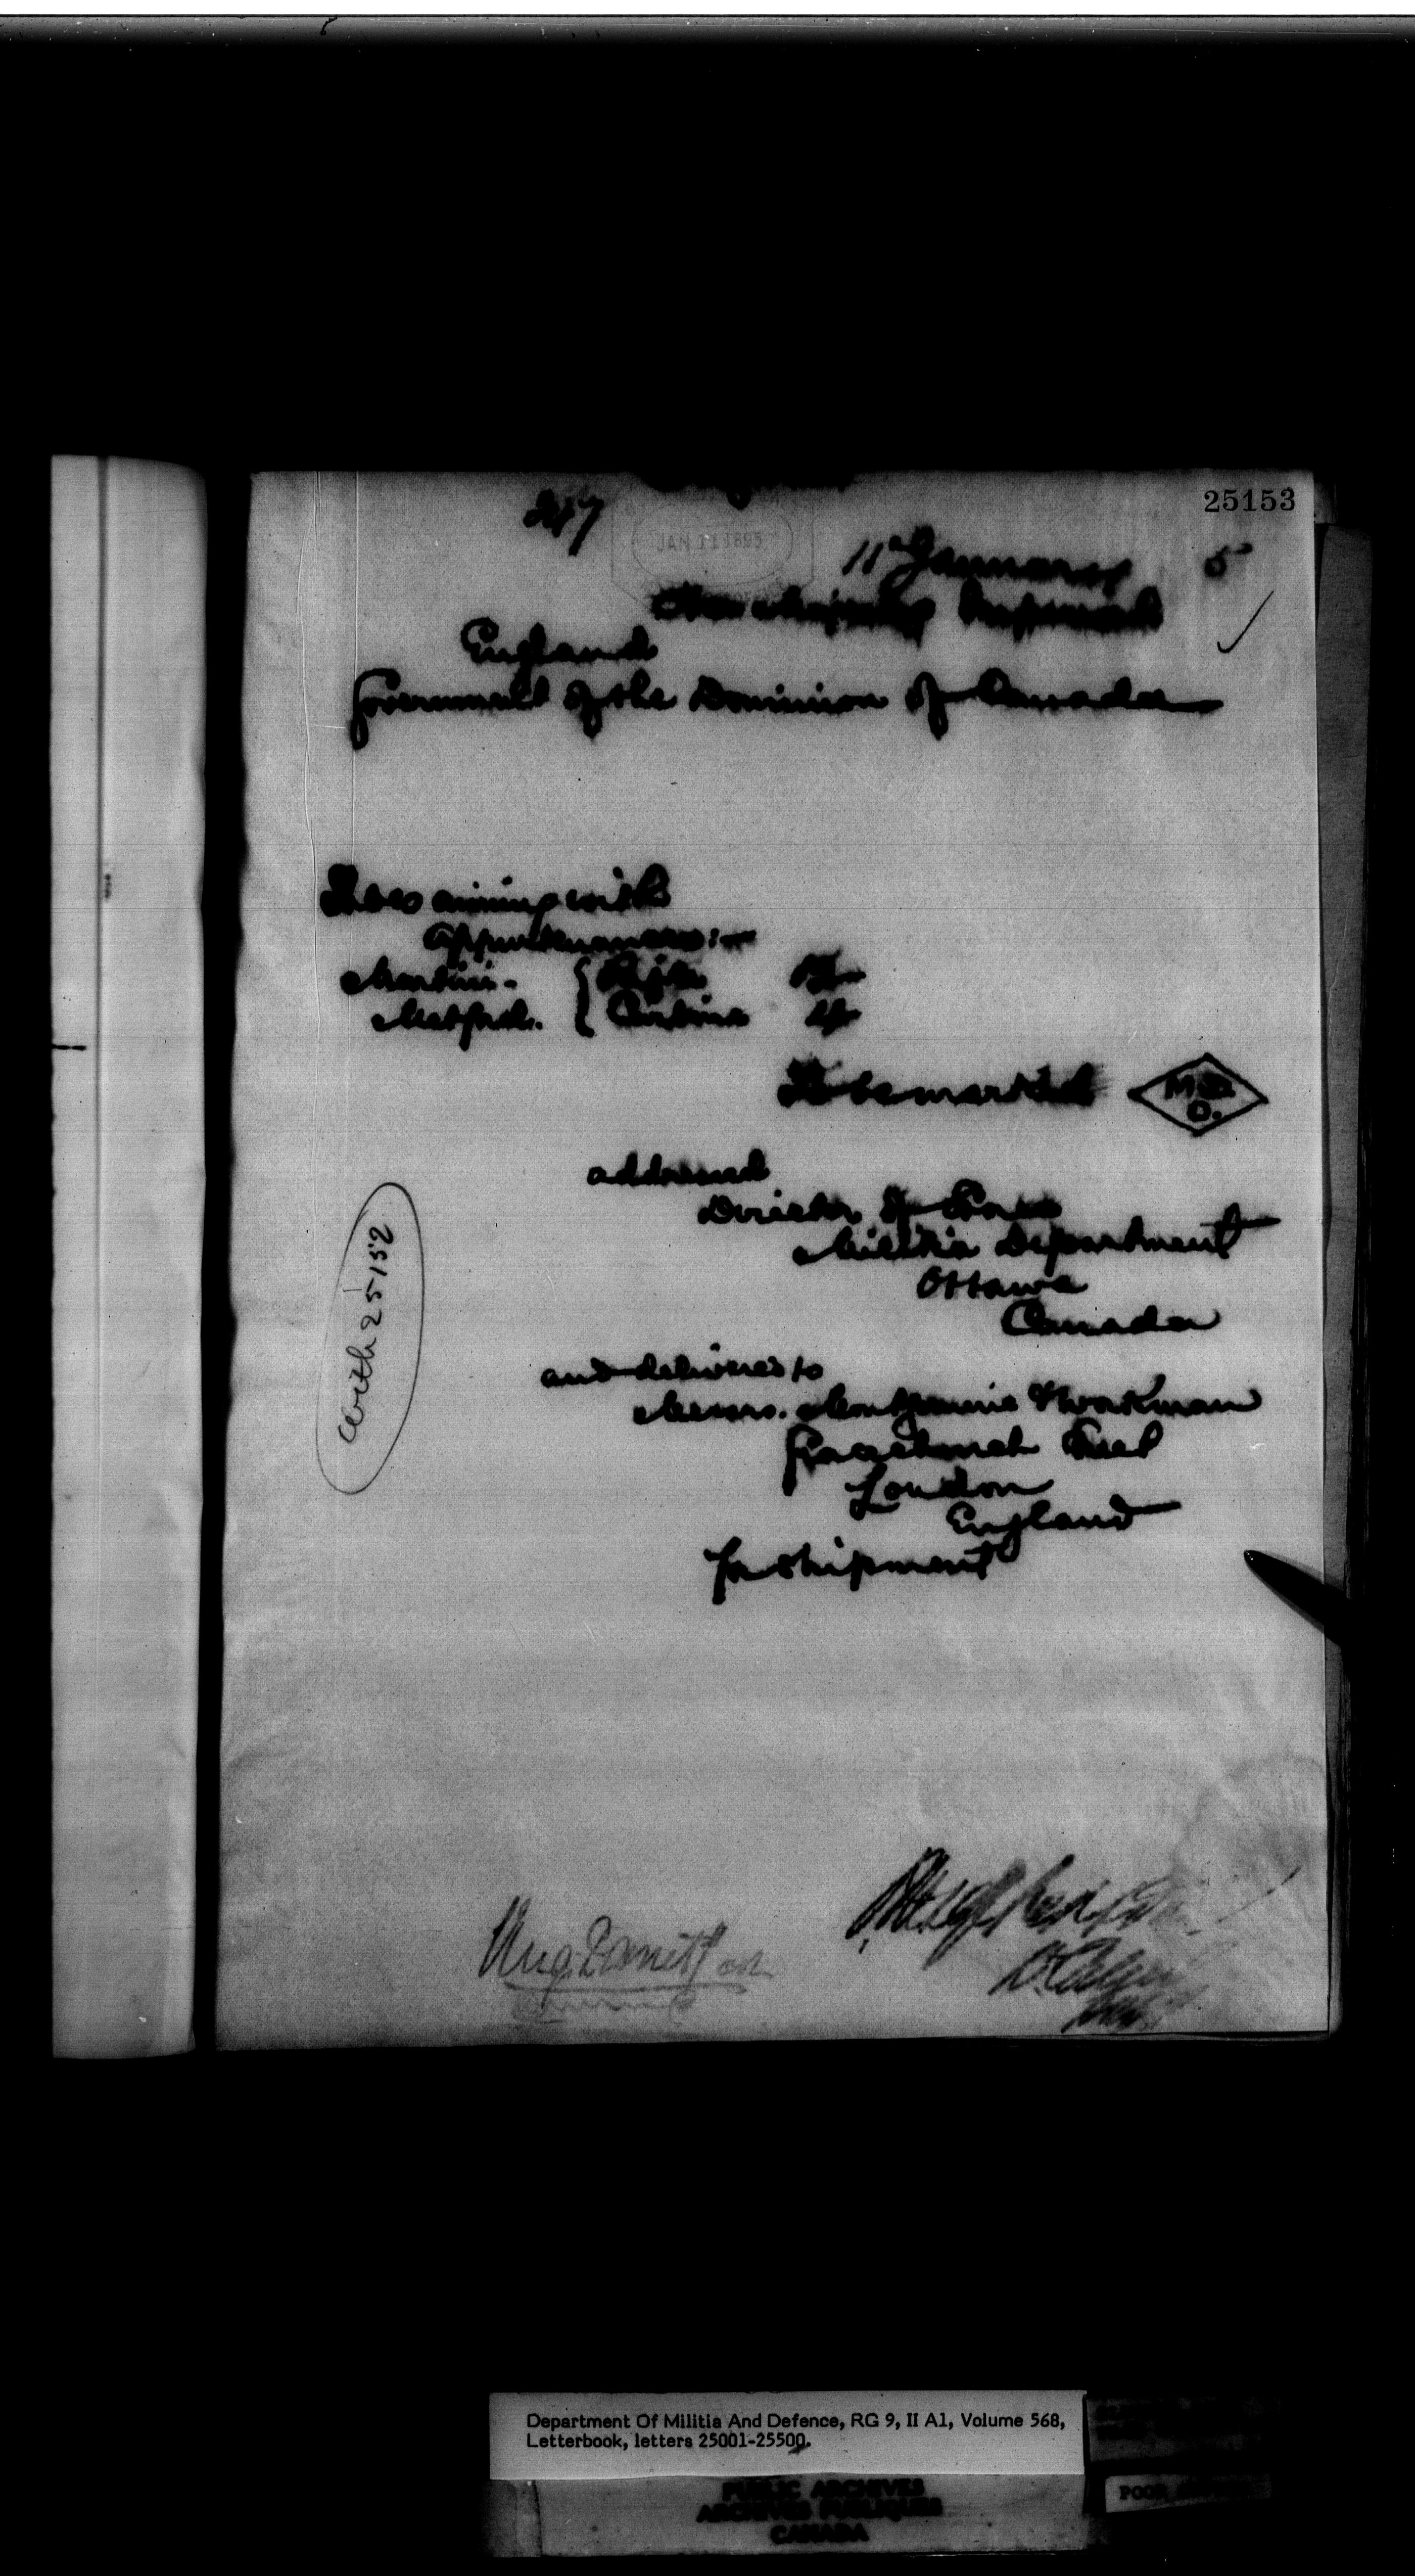 25153
247
JAN 11 1895
11th January 5
Her Majesty's Imperial
England
Government of the Dominion of Canada
Tubes aiming with
Appurtenances:-
Martini- { Rifle
Metford. { Carbine
To be marked M&D
O.
addressed
Director of Stores
Militia Department
Ottawa
Canada
and delivered to
Messrs. Montgomerie & Workman
Gracechurch Street
London
England
for shipment
with 25152
Department Of Militia And Defence, RG 9, II A1, Volume 568,
Letterbook, letters 25001-25500.
PUBLIC ARCHIVES
ARCHIVES PUBLIQUES
CANADA
POOR